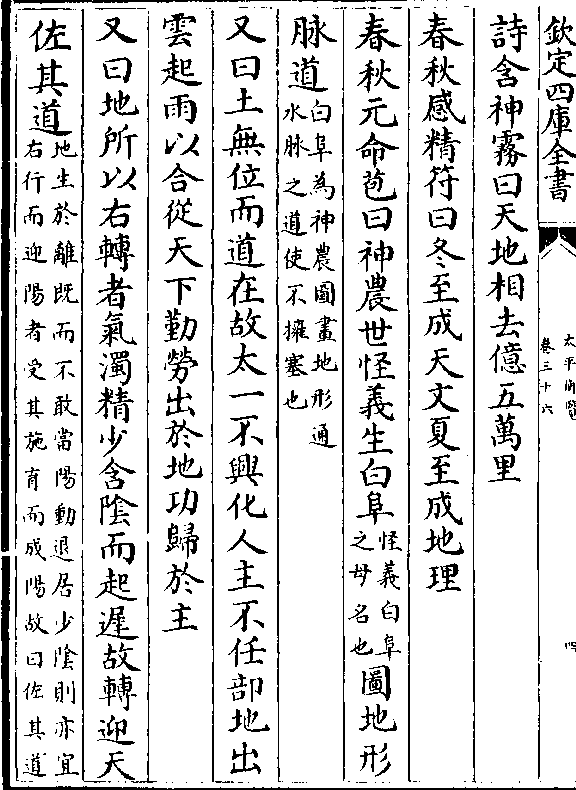 欽定四庫全書
太平御覽
卷三十六
四
詩含神霧曰天地相去億五萬里
春秋感精符曰冬至成天文夏至成地理
春秋元命苞曰神農世怪義生白阜怪義白阜之母名也圖地形
脉道白阜為神農圖畫地形通水脉之道使不擁塞也
又曰土無位而道在故太一不興化人主不任部地出
雲起雨以合從天下勤勞出於地功歸於主
又曰地所以右轉者氣濁精少含隂而起遲故轉迎天
佐其道地生於離既而不敢當陽動退居少隂則亦宜右行而迎陽者受其施育而成陽故曰佐其道